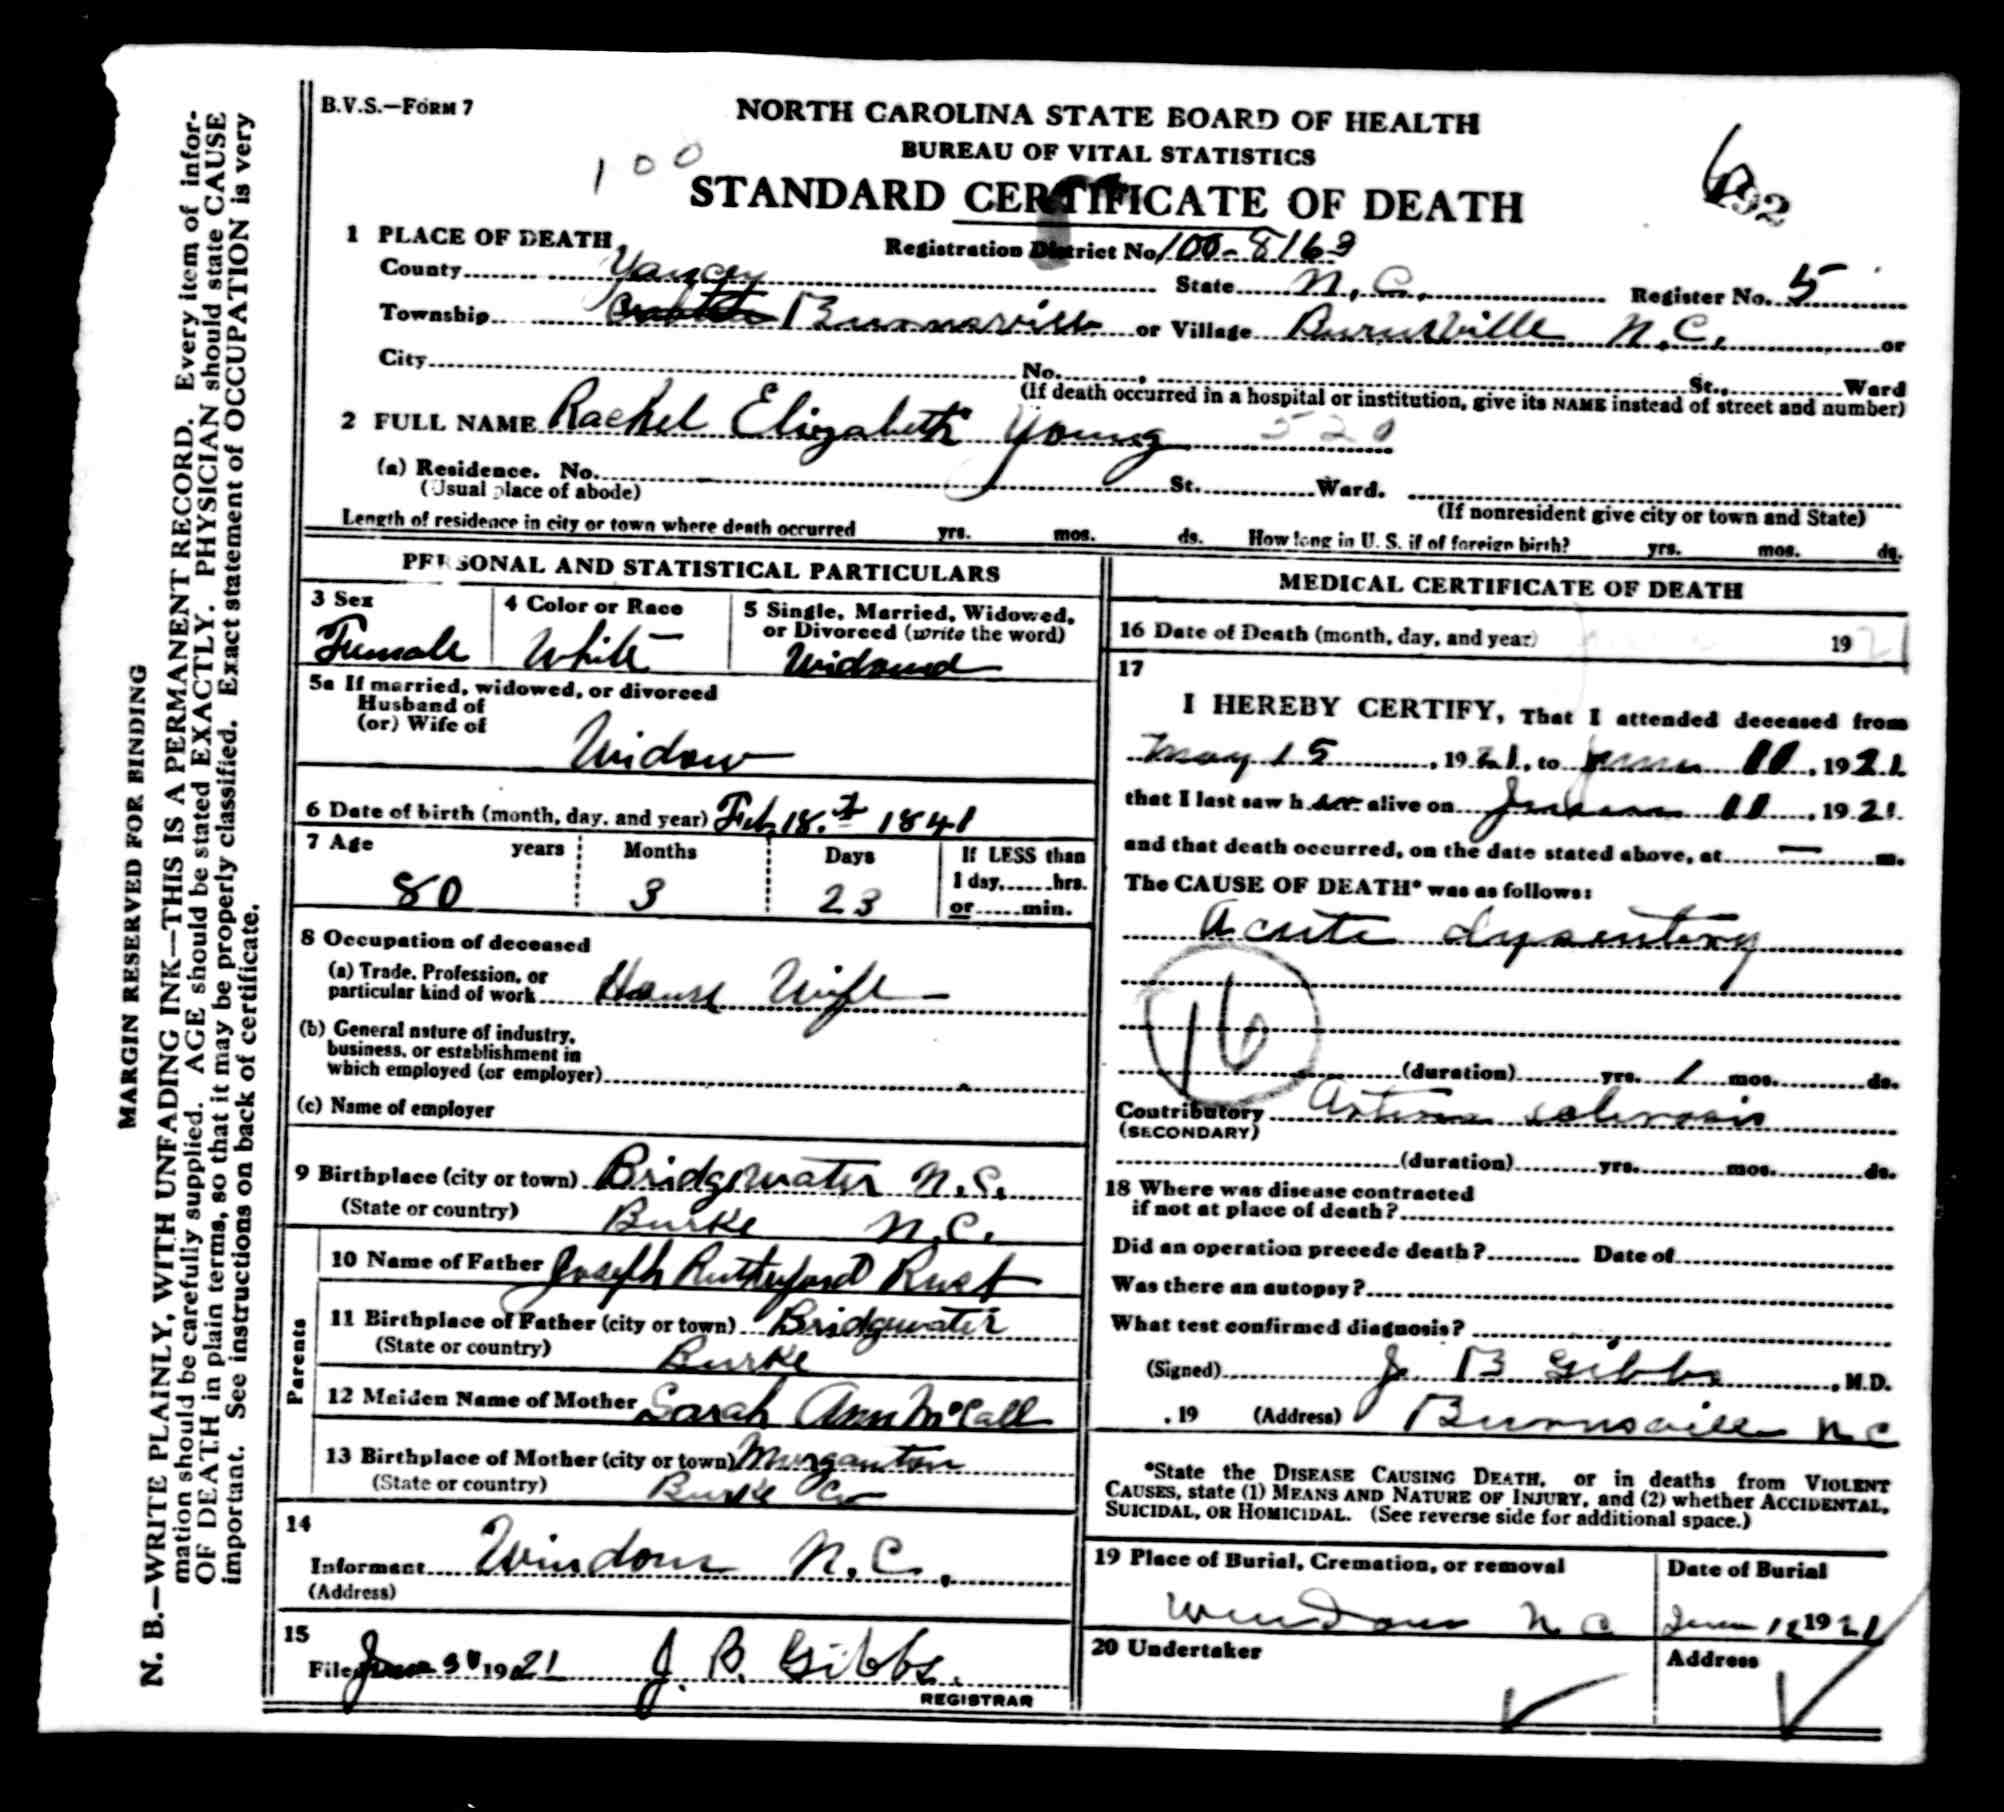 B.V.S.—FORM 7
NORTH CAROLINA STATE BOARD OF HEALTH
BUREAU OF VITAL STATISTICS
100
STANDARD CERTIFICATE OF DEATH
1 PLACE OF DEATH
Registration District No. 100-8163
County Yancey State N.C. Register No. 5
Township Burnsville or Village Burnsville N.C. or
City No. , St., Ward
(If death occurred in a hospital or institution, give its NAME instead of street and number)
2 FULL NAME Rachel Elizabeth Young 520
(a) Residence. No. St. Ward.
(Usual place of abode)
(If nonresident give city or town and State)
Length of residence in city or town where death occurred yrs. mos. ds. How long in U. S. if of foreign birth? yrs. mos. ds.
PERSONAL AND STATISTICAL PARTICULARS
3 Sex
Female
4 Color or Race
White
5 Single, Married, Widowed,
or Divorced (write the word)
Widowed
5a If married, widowed, or divorced
Husband of
(or) Wife of
Widow
6 Date of birth (month, day, and year) Feb 18. 1841
7 Age years Months Days If LESS than
1 day, hrs.
80 3 23 or min.
8 Occupation of deceased
(a) Trade, Profession, or
particular kind of work House Wife
(b) General nature of industry,
business, or establishment in
which employed (or employer)
(c) Name of employer
9 Birthplace (city or town) Bridgwater N.C.
(State or country) Burke N.C.
Parents
10 Name of Father Joseph Rutherford Rust
11 Birthplace of Father (city or town) Bridgwater
(State or country) Burke
12 Maiden Name of Mother Sarah Ann McCall
13 Birthplace of Mother (city or town) Morganton
(State or country) Burke Co
14
Informant Windom N.C.
(Address)
15
Filed June 30 1921 J. B. Gibbs.
REGISTRAR
MEDICAL CERTIFICATE OF DEATH
16 Date of Death (month, day, and year) 1921
17
I HEREBY CERTIFY, That I attended deceased from
May 15, 1921, to June 11, 1921
that I last saw her alive on June 11, 1921.
and that death occurred, on the date stated above, at — m.
The CAUSE OF DEATH* was as follows:
Acute dysentery
16
(duration) yrs. 1 mos. ds.
Contributory Arterio sclerosis
(SECONDARY)
(duration) yrs. mos. ds.
18 Where was disease contracted
if not at place of death?
Did an operation precede death? Date of
Was there an autopsy?
What test confirmed diagnosis?
(Signed) J B Gibbs, M.D.
, 19 (Address) Burnsville N C
*State the DISEASE CAUSING DEATH, or in deaths from VIOLENT
CAUSES, state (1) MEANS AND NATURE OF INJURY, and (2) whether ACCIDENTAL,
SUICIDAL, OR HOMICIDAL. (See reverse side for additional space.)
19 Place of Burial, Cremation, or removal
Windom N C
Date of Burial
June 12 1921
20 Undertaker
Address
MARGIN RESERVED FOR BINDING
N. B.—WRITE PLAINLY, WITH UNFADING INK—THIS IS A PERMANENT RECORD. Every item of infor-
mation should be carefully supplied. AGE should be stated EXACTLY. PHYSICIAN should state CAUSE
OF DEATH in plain terms, so that it may be properly classified. Exact statement of OCCUPATION is very
important. See instructions on back of certificate.